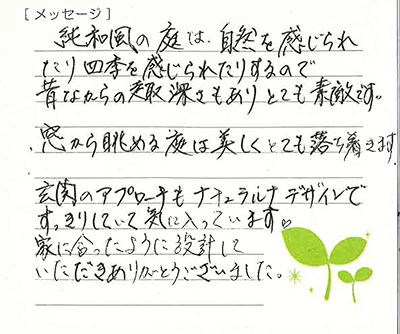 [メッセージ]
純和風の庭は、自然を感じられ
たり四季を感じられたりするので
昔ながらの趣深さもありとても素敵です。
窓から眺める庭は美しくとても落ち着きます
玄関のアプローチもナチュラルナデザインで
すっきりしていて気に入っています。
家に合ったように設計して
いただきありがとうございました。